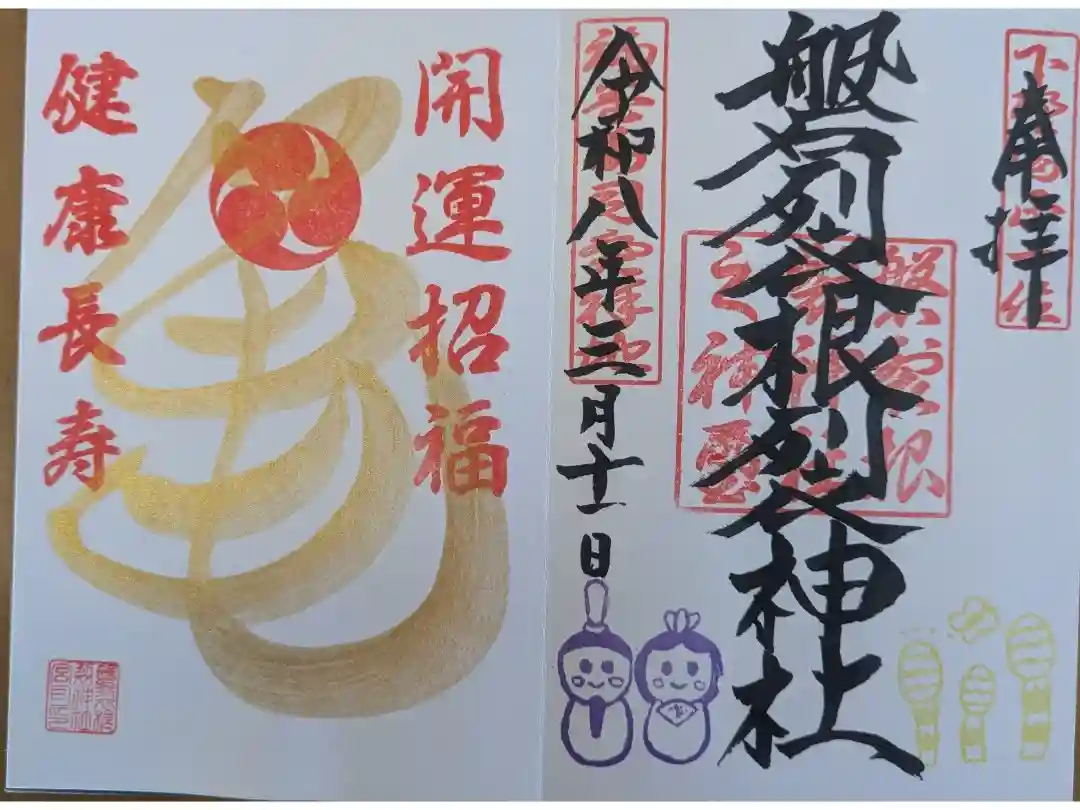 奉拝
磐裂根裂神社
令和八年三月十一日
開運招福
亀
健康長寿